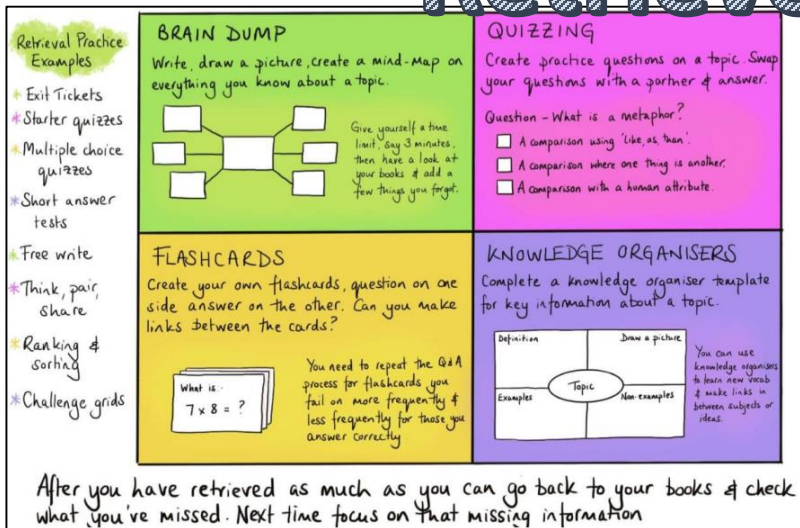 Retrieval Practice
Examples
* Exit Tickets
* Starter quizzes
* Multiple choice
quizzes
* Short answer
tests
* Free write
* Think, pair,
share
* Ranking &
sorting
* Challenge grids
BRAIN DUMP
Write, draw a picture, create a mind-map on
everything you know about a topic.
Give yourself a time
limit, say 3 minutes,
then have a look at
your books & add a
few things you forgot.
QUIZZING
Create practice questions on a topic. Swap
your questions with a partner & answer.
Question - What is a metaphor?
A comparison using 'like, as, than'.
A comparison where one thing is another.
A comparison with a human attribute.
FLASHCARDS
Create your own flashcards, question on one
side answer on the other. Can you make
links between the cards?
What is -
7 x 8 = ?
You need to repeat the Q&A
process for flashcards you
fail on more frequently &
less frequently for those you
answer correctly
KNOWLEDGE ORGANISERS
Complete a knowledge organiser template
for key information about a topic.
Definition
Draw a picture
Topic
Examples
Non-examples
You can use
knowledge organisers
to learn new vocab
& make links in
between subjects or
ideas.
After you have retrieved as much as you can go back to your books & check
what you've missed. Next time focus on that missing information